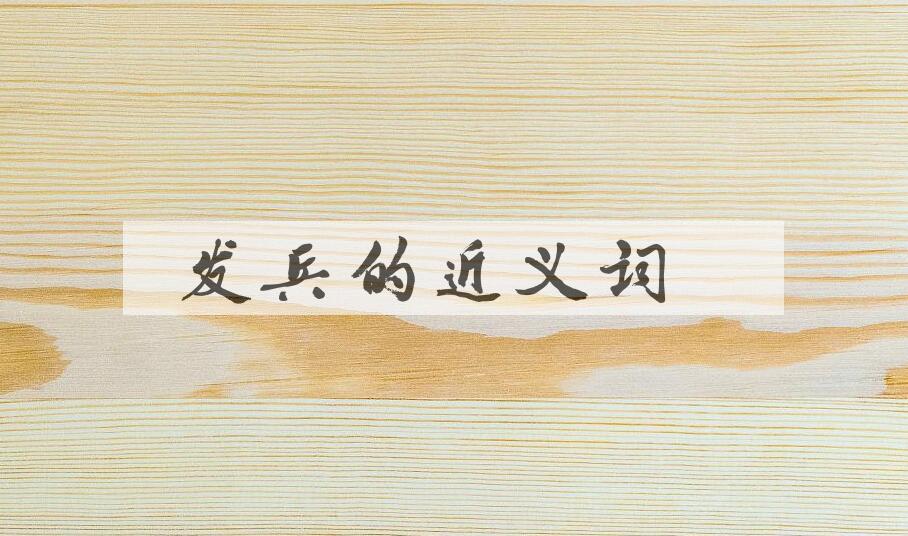 发兵的近义词